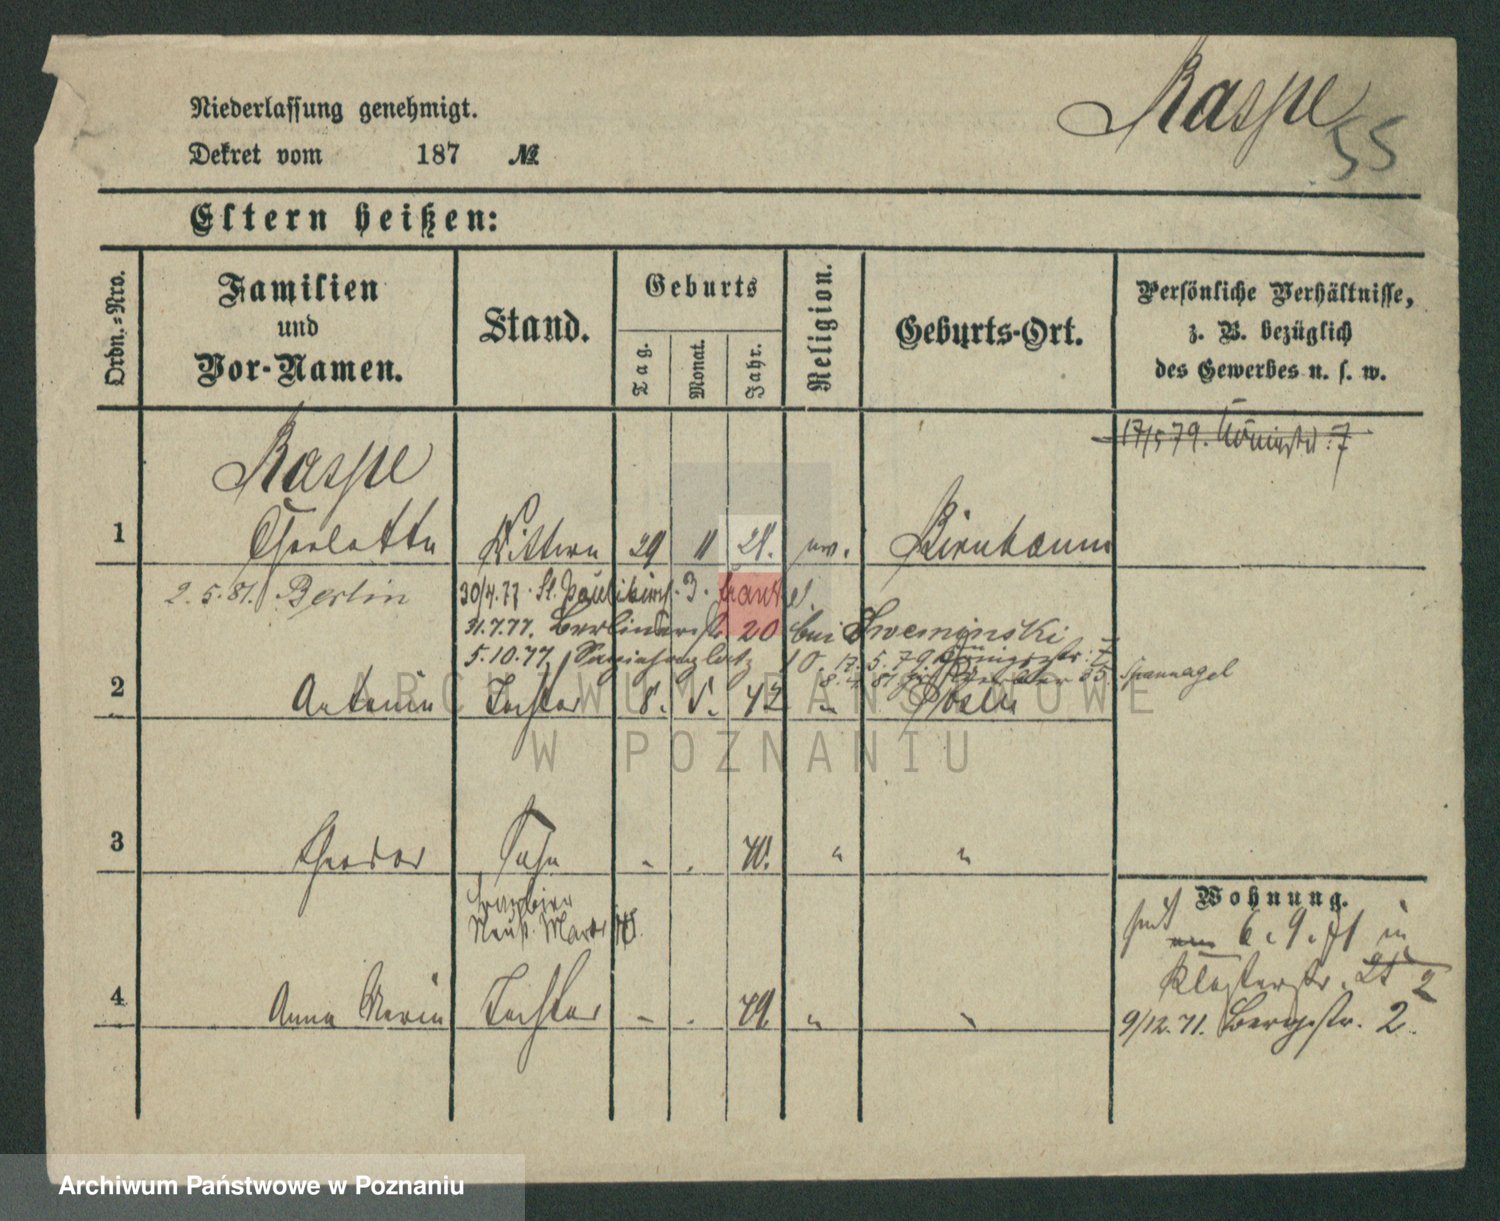 Niederlassung genehmigt.
Raspe
Dekret vom 187 №
55
Eltern heißen:
Ordn.-Nro.
Familien
und
Vor-Namen.
Stand.
Geburts
Tag.
Monat.
Jahr.
Religion.
Geburts-Ort.
Persönliche Verhältnisse,
z. B. bezüglich
des Gewerbes u. s. w.
17/5 79. Königstr. 7
Raspe
1 Charlotte Wittwe 29 11 21. ev. Birnbaum
2.5.81. Berlin 30/4.77. St. Paulikirchstr. 3.
31.7.77. Berlinerstr. 20 bei Sweminski
5.10.77 Sapiehaplatz 10. 17.5.79. Königsstr. 7
8.4.81 55. Spannagel
2 Antonie Tochter 8. 5. 42 " Posen
ARCHIWUM PAŃSTWOWE
W POZNANIU
3 Theodor Sohn - . 48. " "
Neust. Markt
Wohnung.
seit 6.9.71 in
Klosterstr. 2
4 Anna Maria Tochter - . 49. " "
9/12.71. Bergstr. 2.
Archiwum Państwowe w Poznaniu